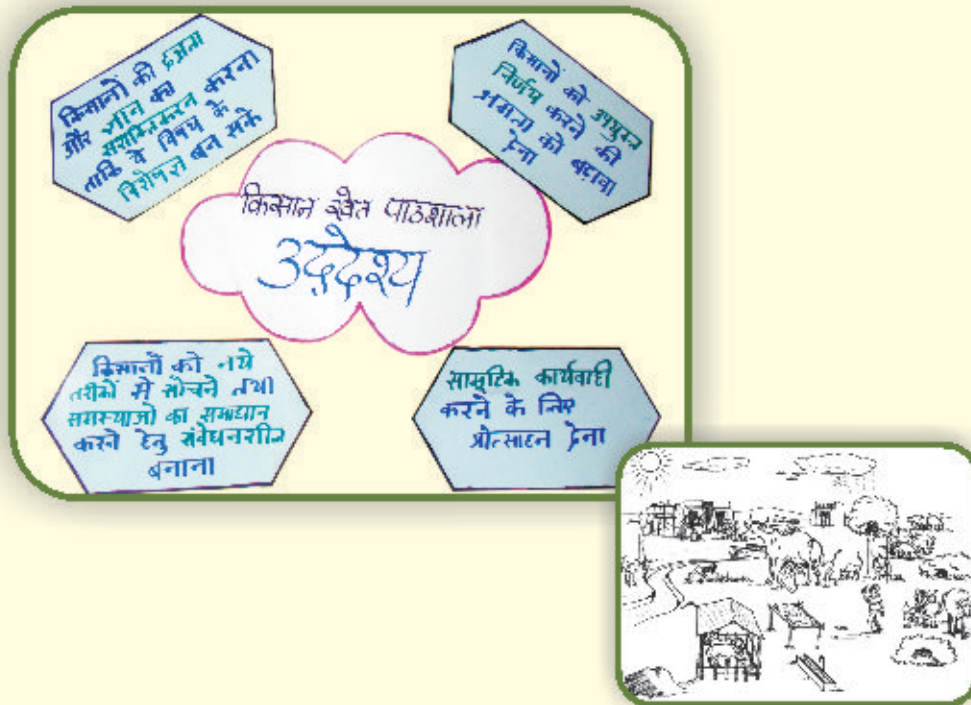 किसानों की दक्षता
और ज्ञान का
सशक्तिकरन करना
ताकि वे विषय के
विशेषज्ञ बन सके
किसानों को उपयुक्त
निर्णय करने की
क्षमता को बढ़ावा
देना
किसान खेत पाठशाला
उद्देश्य
किसानों को नये
तरीकों से सोचने तथा
समस्याओं का समाधान
करने हेतु संवेधनशील
बनाना
सामूहिक कार्यवाही
करने के लिए
प्रोत्साहन देना